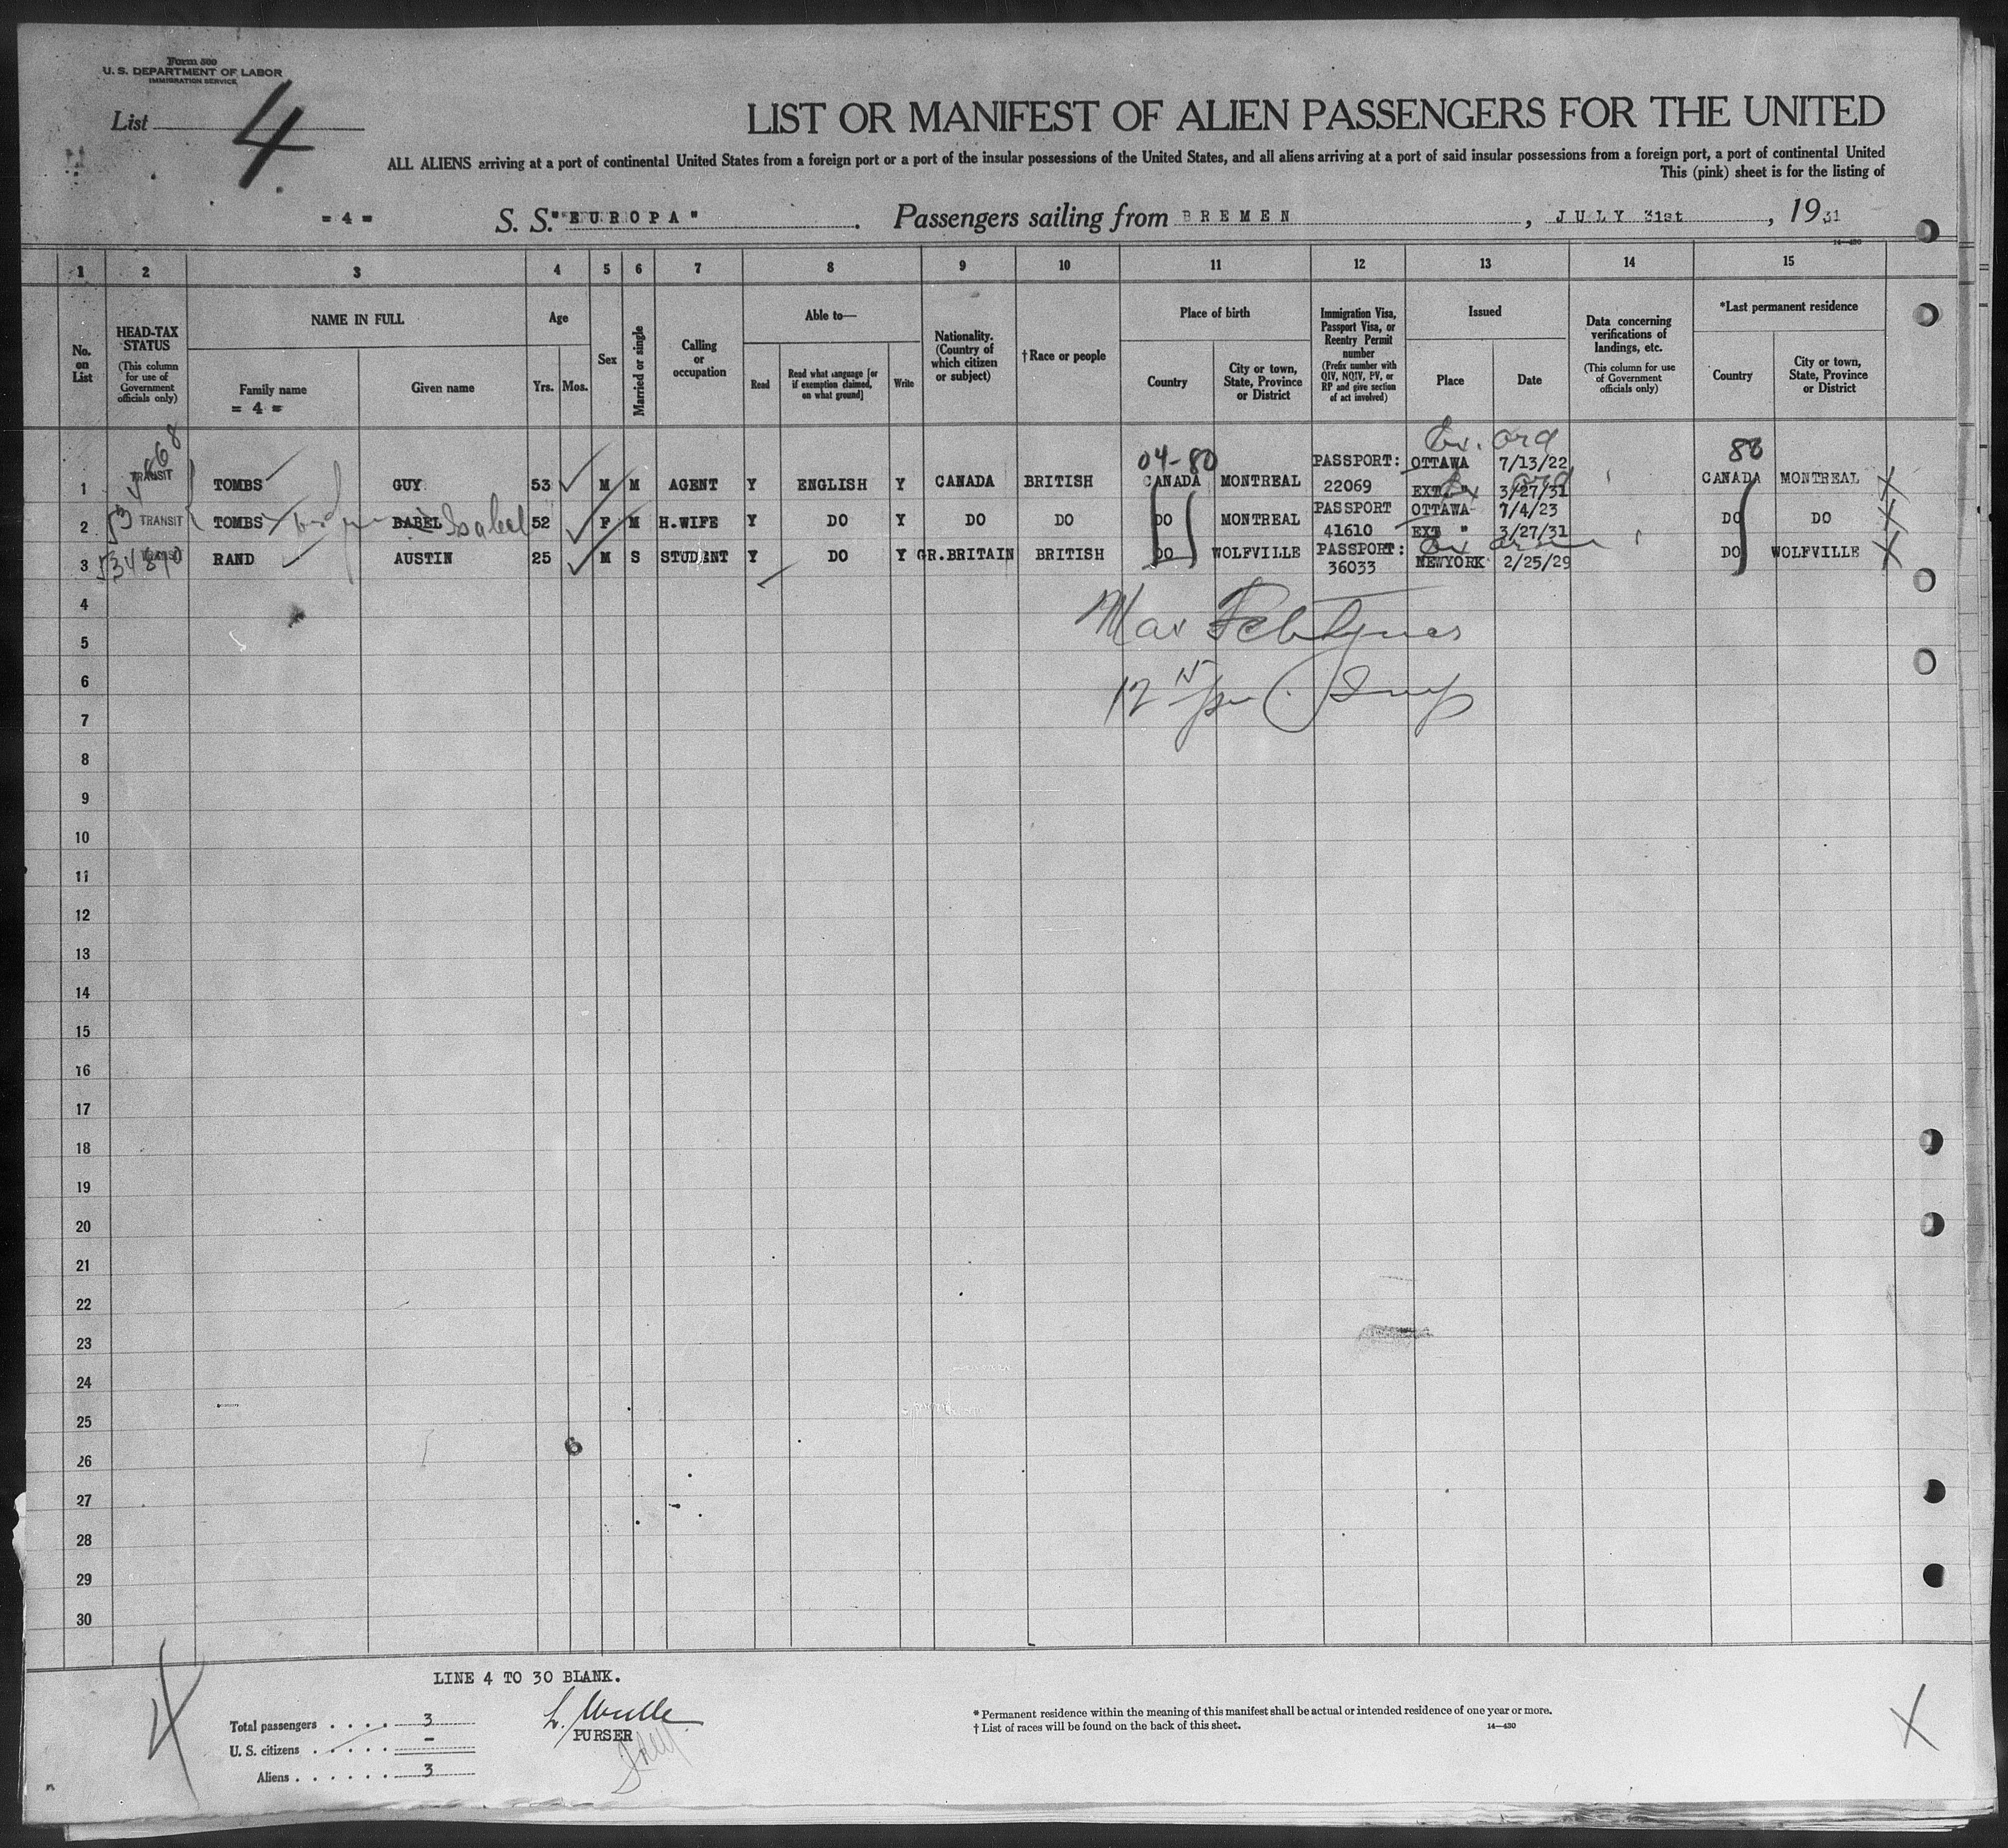 Form 500
U. S. DEPARTMENT OF LABOR
IMMIGRATION SERVICE
List 4
LIST OR MANIFEST OF ALIEN PASSENGERS FOR THE UNITED
ALL ALIENS arriving at a port of continental United States from a foreign port or a port of the insular possessions of the United States, and all aliens arriving at a port of said insular possessions from a foreign port, a port of continental United
This (pink) sheet is for the listing of
= 4 = S. S. "EUROPA" . Passengers sailing from BREMEN , JULY 31st , 1931
14—430
1 2 3 4 5 6 7 8 9 10 11 12 13 14 15
No. on List
HEAD-TAX STATUS
(This column for use of Government officials only)
NAME IN FULL
Family name
= 4 =
Given name
Age
Yrs. Mos.
Sex
Married or single
Calling or occupation
Able to—
Read
Read what language [or if exemption claimed, on what ground]
Write
Nationality. (Country of which citizen or subject)
† Race or people
Place of birth
Country
City or town, State, Province or District
Immigration Visa, Passport Visa, or Reentry Permit number
(Prefix number with QIV, NQIV, PV, or RP and give section of act involved)
Issued
Place
Date
Data concerning verifications of landings, etc.
(This column for use of Government officials only)
*Last permanent residence
Country
City or town, State, Province or District
04-80
88
1 TRANSIT TOMBS GUY 53 M M AGENT Y ENGLISH Y CANADA BRITISH CANADA MONTREAL PASSPORT: 22069 OTTAWA 7/13/22 EXT. " 3/27/31 CANADA MONTREAL X
2 TRANSIT TOMBS BABEL Isabel 52 F M H.WIFE Y DO Y DO DO DO MONTREAL PASSPORT 41610 OTTAWA 7/4/23 EXT " 3/27/31 DO DO X
3 RAND AUSTIN 25 M S STUDENT Y DO Y GR.BRITAIN BRITISH DO WOLFVILLE PASSPORT: 36033 NEWYORK 2/25/29 DO WOLFVILLE X
4
5
6
7
8
9
10
11
12
13
14
15
16
17
18
19
20
21
22
23
24
25
26
27
28
29
30
6
LINE 4 TO 30 BLANK.
Total passengers . . . . 3
U. S. citizens . . . . . –
Aliens . . . . . . 3
PURSER
* Permanent residence within the meaning of this manifest shall be actual or intended residence of one year or more.
† List of races will be found on the back of this sheet.
14—430
X